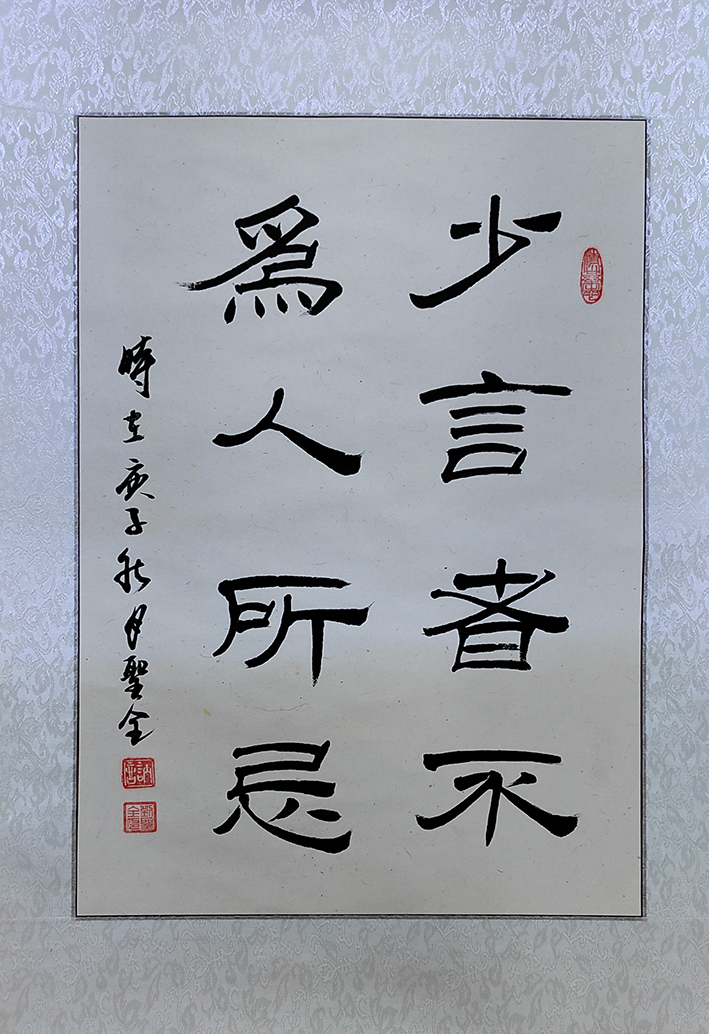 少言者不
為人所忌
時在庚子秋月聖全